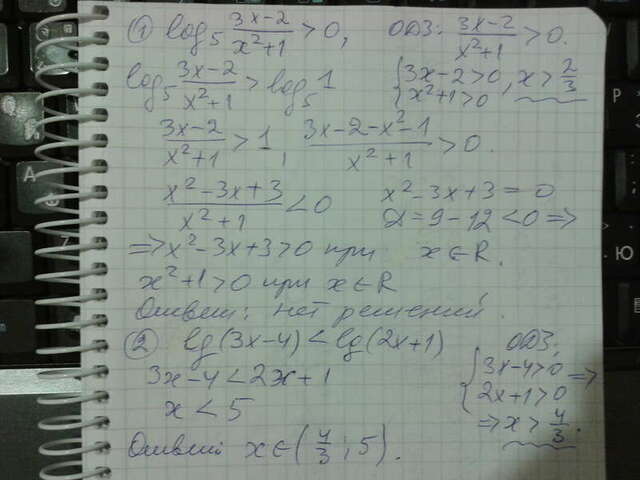 ① log₅ (3x-2)/(x²+1) > 0, ОДЗ: (3x-2)/(x²+1) > 0.
log₅ (3x-2)/(x²+1) > log₅ 1 { 3x-2>0, x²+1>0 x > 2/3
(3x-2)/(x²+1) > 1, (3x-2-x²-1)/(x²+1) > 0.
(x²-3x+3)/(x²+1) < 0 x²-3x+3=0
D=9-12<0 =>
=> x²-3x+3>0 при x∈R.
x²+1>0 при x∈R
Ответ: нет решений.
② lg(3x-4)<lg(2x+1) ОДЗ:
3x-4<2x+1 { 3x-4>0 2x+1>0 =>
x<5 => x > 4/3.
Ответ: x∈(4/3; 5).
Р
Ю